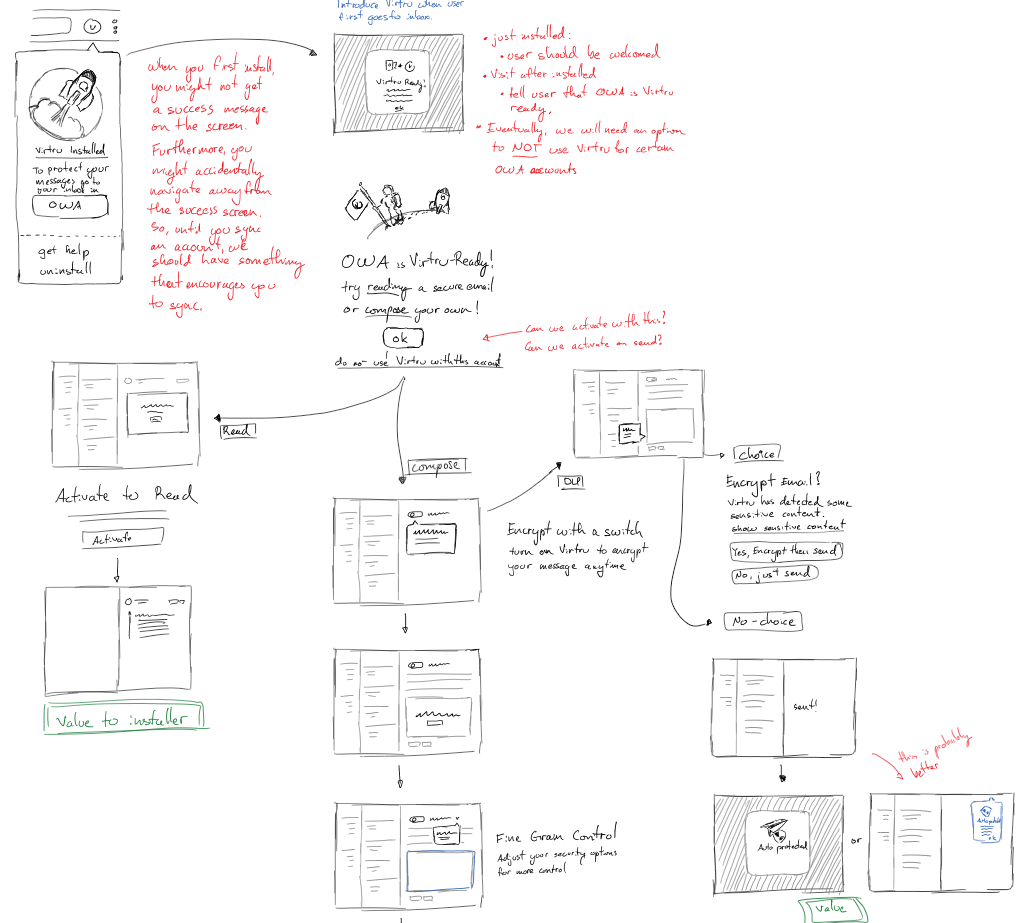 Introduce Virtru when user
first goes to inbox.
Virtru Installed
To protect your
messages go to
your inbox in
OWA
get help
uninstall
when you first install,
you might not get
a success message
on the screen.
Furthermore, you
might accidentally
navigate away from
the success screen.
So, until you sync
an account, we
should have something
that encourages you
to sync.
Virtru Ready!
ok
• just installed:
• user should be welcomed
• Visit after installed
• tell user that OWA is Virtru
ready.
• Eventually, we will need an option
to NOT use Virtru for certain
OWA accounts
OWA is Virtru-Ready!
try reading a secure email
or compose your own!
ok
do not use Virtru with this account
can we activate with this?
Can we activate on send?
Read
compose
DLP
Activate to Read
Activate
Value to installer
Encrypt with a switch
turn on Virtru to encrypt
your message anytime
choice
Encrypt Email?
Virtru has detected some
sensitive content.
show sensitive content
Yes, Encrypt then send
No, just send
No-choice
sent!
this is probably
better
Auto protected
or
Auto protected
ok
Value
Fine Grain Control
Adjust your security options
for more control